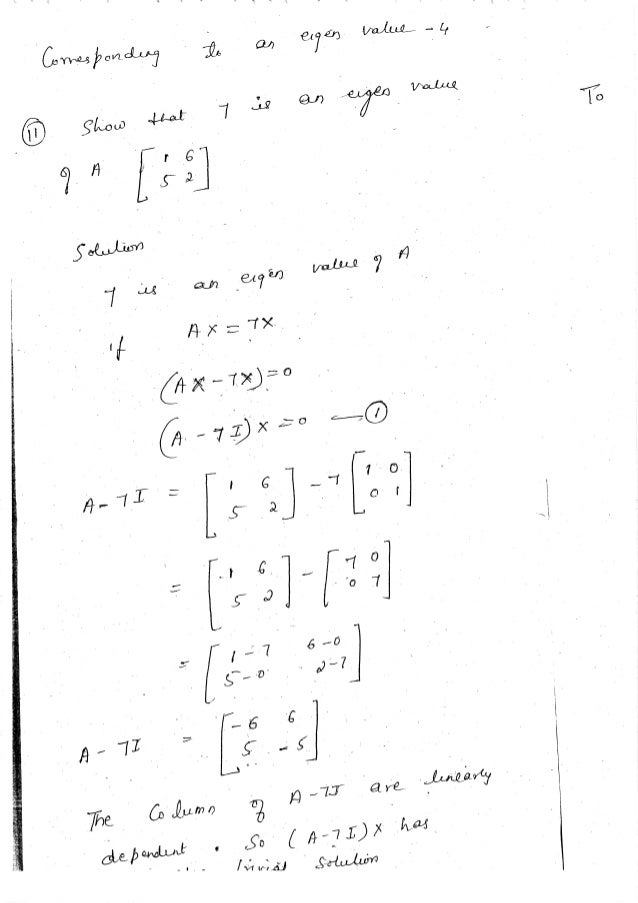 Corresponding to an eigen value -4
(11) Show that 7 is an eigen value To
of A [1 6; 5 2]
Solution
7 is an eigen value of A
if AX = 7X
(AX - 7X) = 0
(A - 7I) X = 0 — (1)
A - 7I = [1 6; 5 2] - 7 [1 0; 0 1]
= [1 6; 5 2] - [7 0; 0 7]
= [1-7 6-0; 5-0 2-7]
A - 7I = [-6 6; 5 -5]
The Column of A - 7I are linearly
dependent. So (A - 7I) X has
trivial Solution